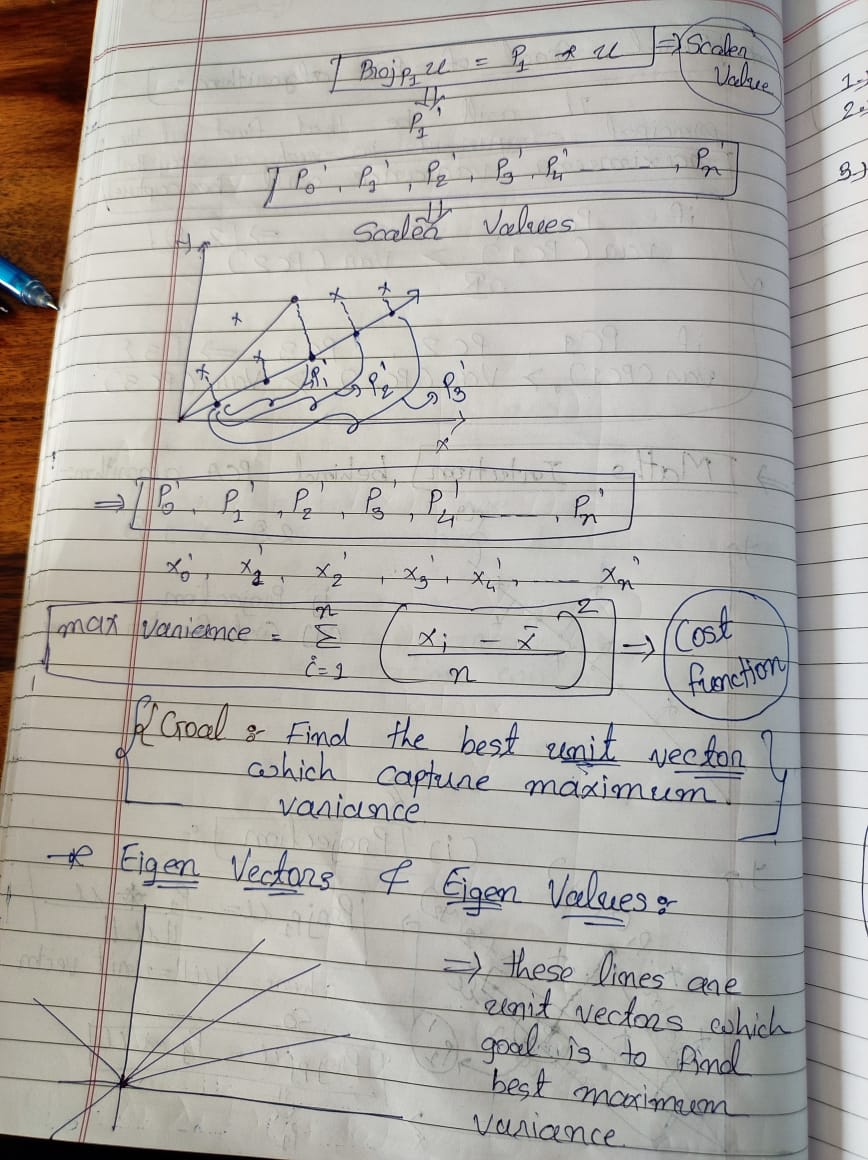 Proj P₁ u = P₁ * u ⇒ Scaler Value
⇓
P₁'
P₀', P₁', P₂', P₃', P₄' ------, Pn'
⇓
Scaler Values
y
P₁' P₂' P₃'
x
⇒ P₀', P₁', P₂', P₃', P₄' ------, Pn'
x₀', x₁', x₂', x₃', x₄', ------ xn'
max variance = Σ i=1 n ( xi - x̄ / n )² ⇒ Cost function
Goal :- Find the best unit vector
which capture maximum
variance
* Eigen Vectors & Eigen Values :-
⇒ these lines are
unit vectors which
goal is to find
best maximum
variance
1-)
2-
3-)